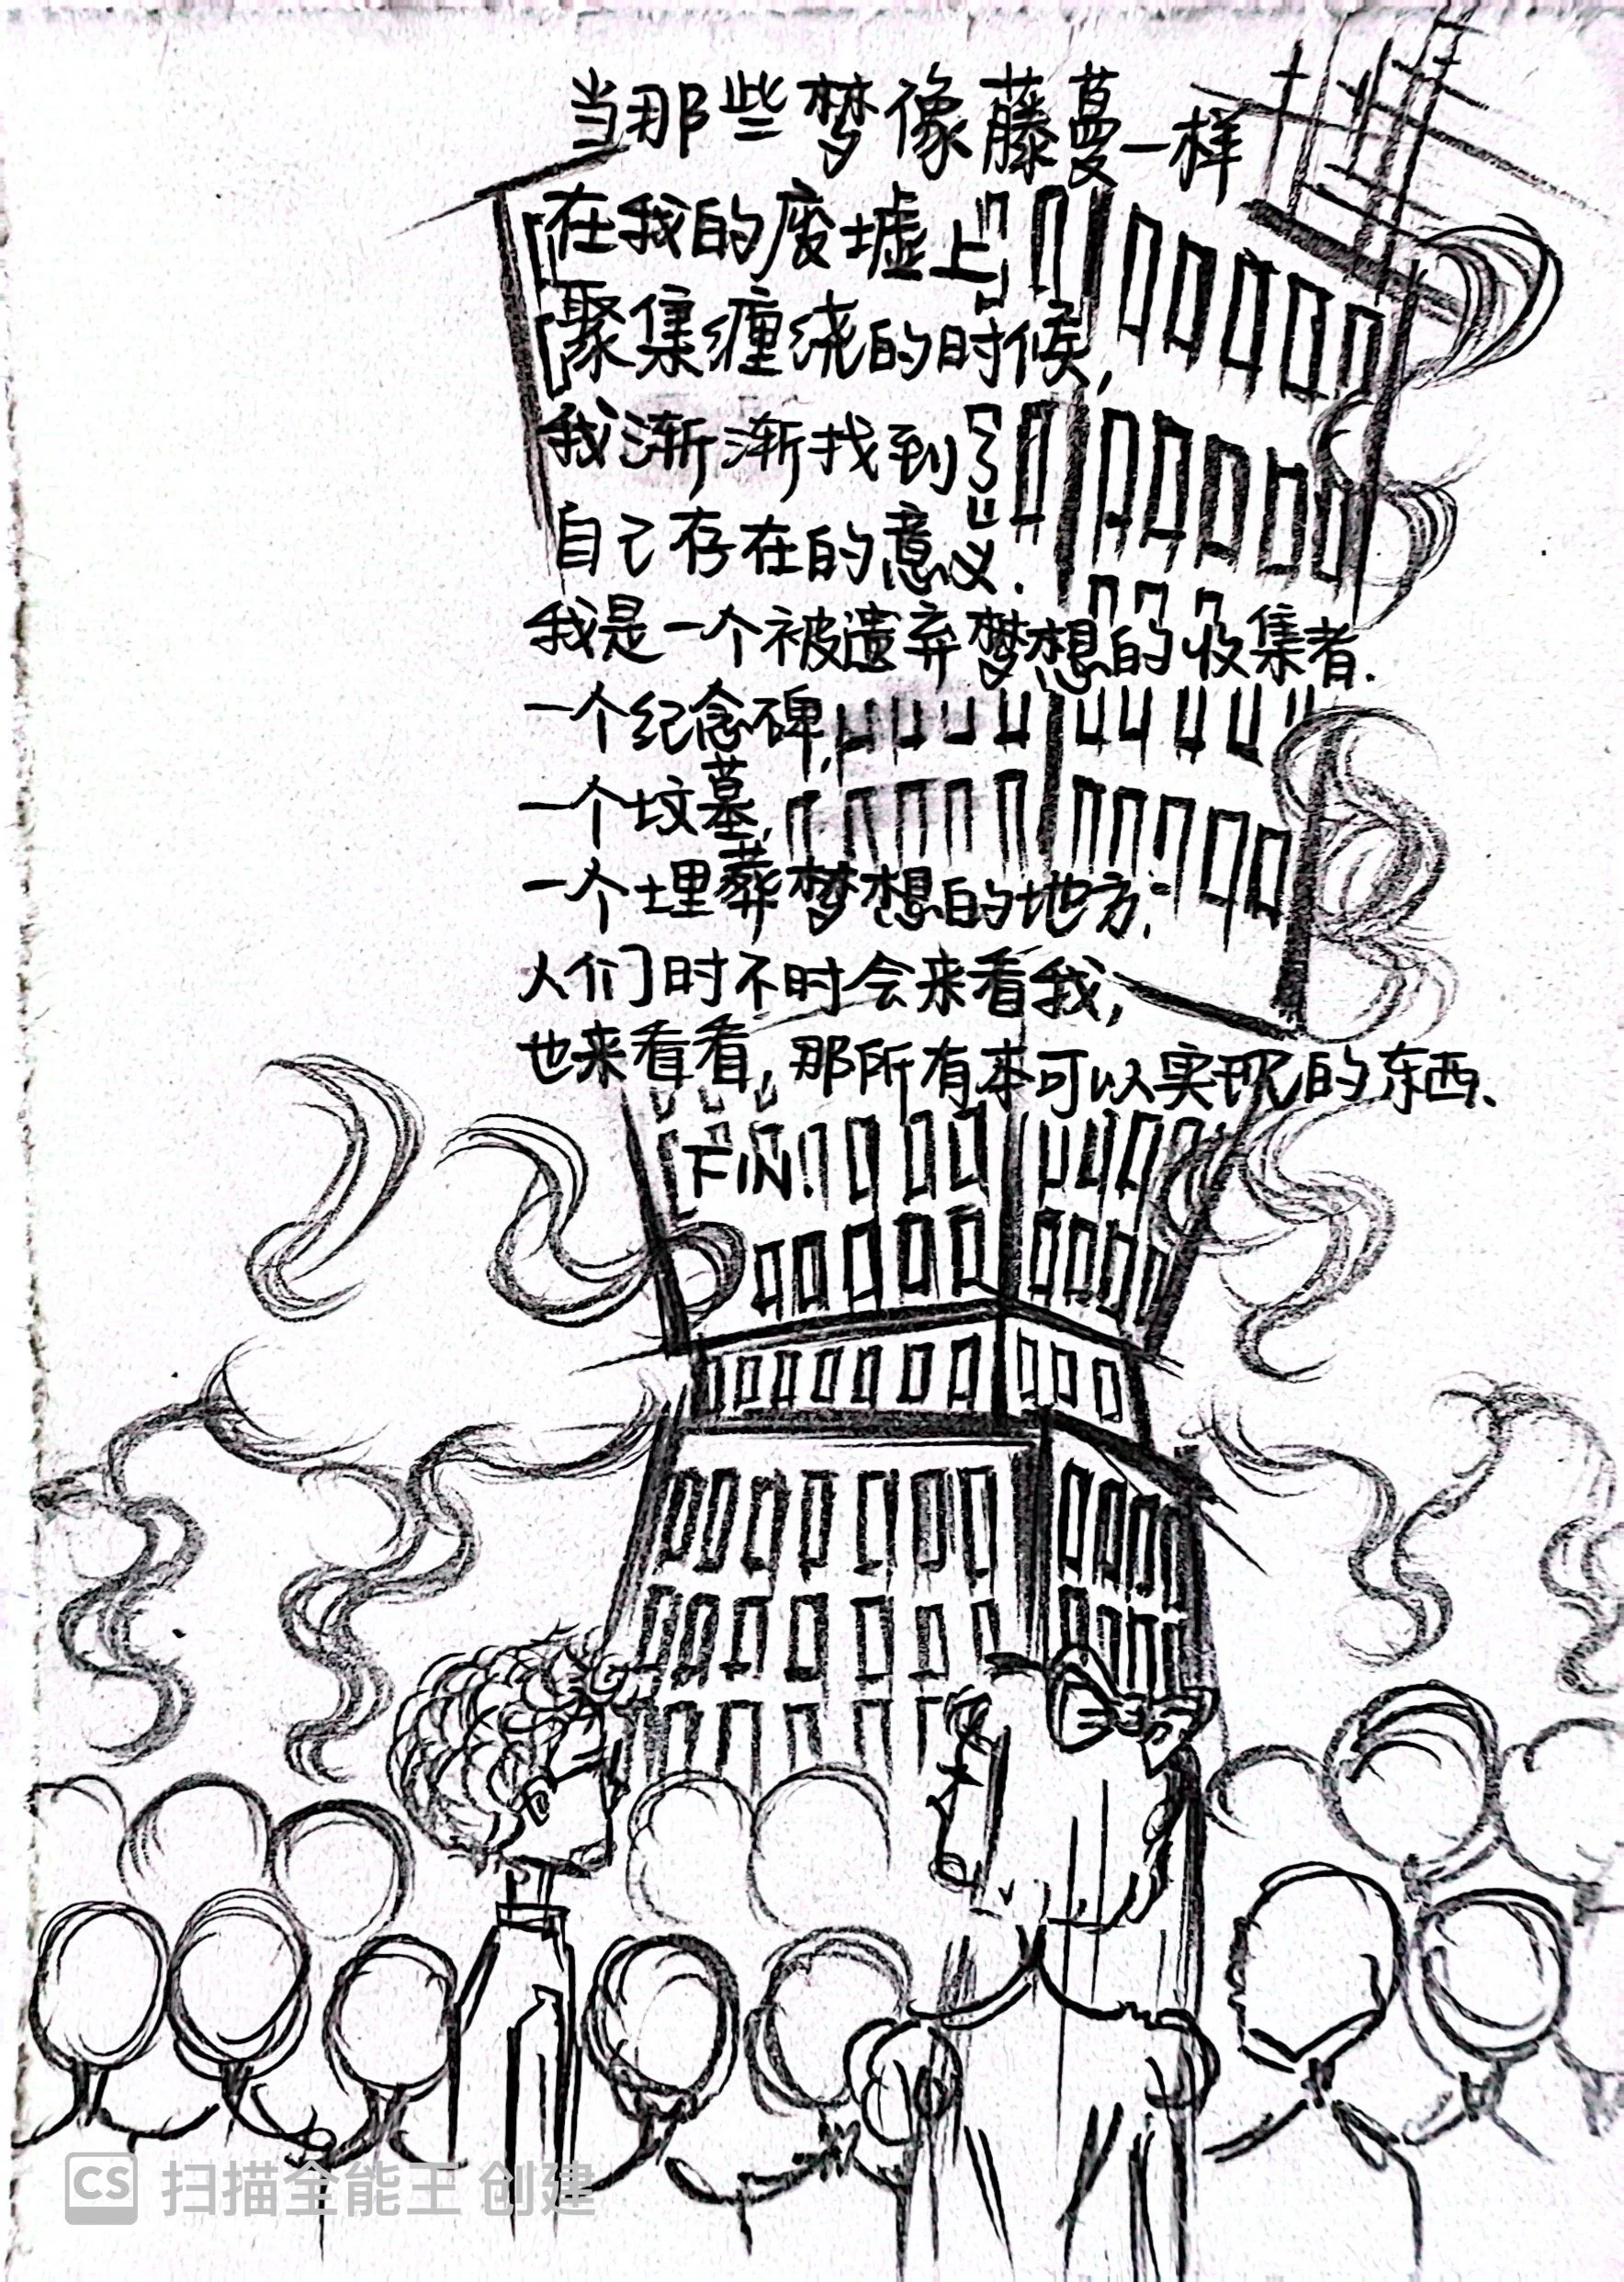 当那些梦像藤蔓一样
在我的废墟上,
聚集缠绕的时候,
我渐渐找到了
自己存在的意义.
我是一个被遗弃梦想的收集者.
一个纪念碑,
一个坟墓,
一个埋葬梦想的地方.
人们时不时会来看我,
也来看看,那所有本可以实现的东西、
FIN.
CS 扫描全能王 创建